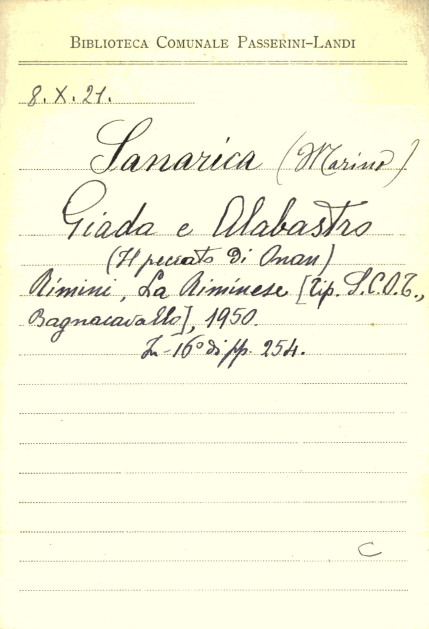 BIBLIOTECA COMUNALE PASSERINI-LANDI
8. X. 21.
Sanarica (Marino)
Giada e Alabastro
(Il peccato di Onan)
Rimini, La Riminese [Tip. S.C.O.T.,
Bagnacavallo], 1950.
In-16° di pp. 254.
C